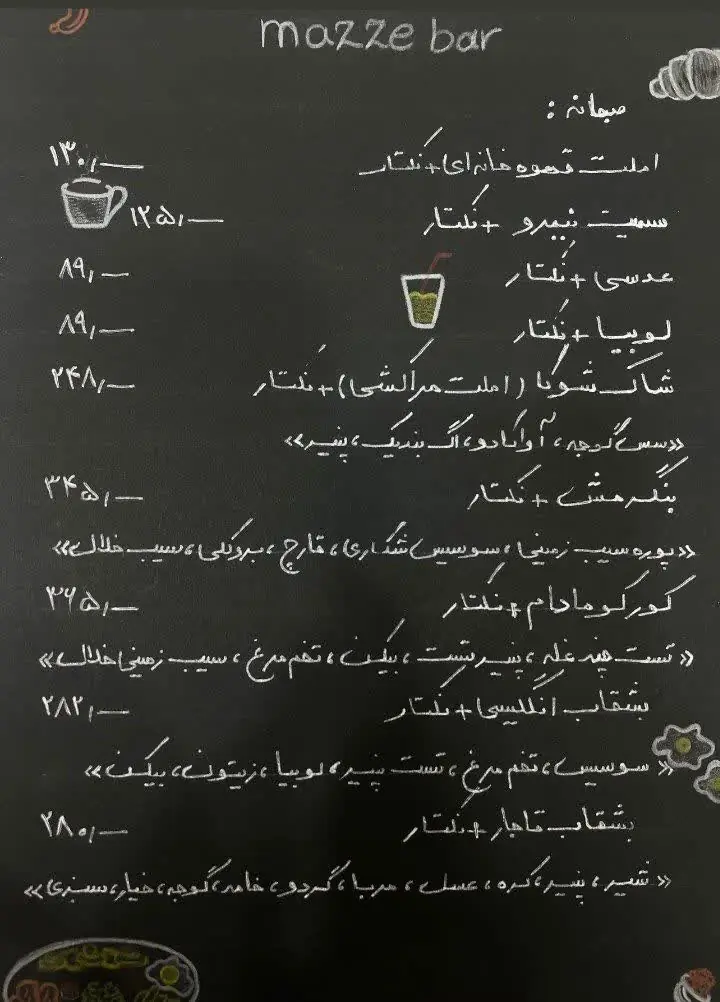 mazze bar
صبحانه :
املت قهوه خانه‌ای+نکتار ۱۳۰,—
سمیت نیمرو +نکتار ۱۲۵,—
عدسی+نکتار ۸۹,—
لوبیا+نکتار ۸۹,—
شاکشوکا (املت مراکشی)+نکتار ۲۴۸,—
«سس گوجه، آوادکادو، اگ بندیک، پنیر»
بنگرمش + نکتار ۳۴۵,—
«پوره سیب زمینی، سوسیس شکاری، قارچ، بروکلی، سیب خلال»
کورکومادام+نکتار ۳۶۵,—
«تست چند غله، پنیر تست، بیکن، تخم مرغ، سیب زمینی خلال»
بشقاب انگلیسی+نکتار ۲۸۲,—
«سوسیس، تخم مرغ، تست پنیر، لوبیا، زیتون، بیکن»
بشقاب قاجار+نکتار ۲۸۰,—
«شیر، پنیر، کره، عسل، مربا، گردو، خامه، گوجه، خیار، سبزی»